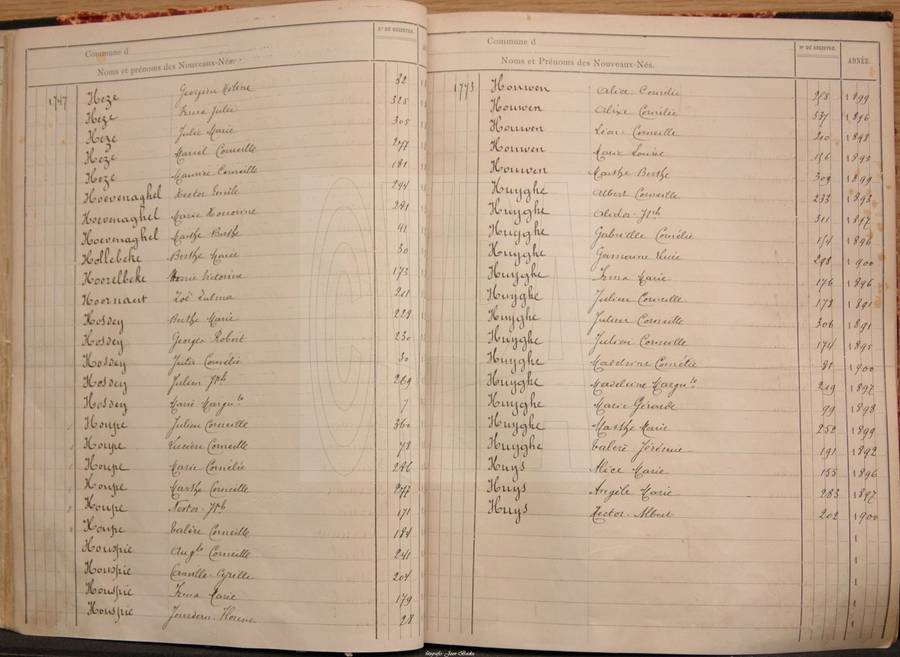 Commune d
Noms et prénoms des Nouveaux-Nés.
N° DU REGISTRE.
1747 Heze 22
Heze Irma Julie 325
Heze Julie Marie 305
Heze Marcel Corneille 277
Heze Maurice Corneille 181
Hoevenaghel Hector Emile 294
Hoevenaghel Marie Honorine 281
Hoevenaghel Marthe Berthe 41
Hollebeke Berthe Marie 30
Hoorelbeke Victorine 173
Hoornaert Zoë Zulma 221
Hosdey Berthe Marie 228
Hosdey Georges Robert 230
Hosdey Jules Cornélie 30
Hosdey Julien Jph 269
Hosdey Marie Margte 7
Houpe Julien Corneille 360
Houpe Lucien Corneille 78
Houpe Marie Cornélie 286
Houpe Marthe Corneille 277
Houpe Nestor Jph 171
Houpe Valère Corneille 184
Houspie Augte Corneille 241
Houspie Camille Cyrille 204
Houspie Irma Marie 179
Houspie 28
Commune d
Noms et Prénoms des Nouveaux-Nés.
N° DU REGISTRE.
ANNÉE.
1773 Houwen Alice Cornélie 258 1899
Houwen Alixe Cornélie 337 1896
Houwen Léon Corneille 210 1898
Houwen Marie Louise 156 1895
Houwen Marthe Berthe 309 1899
Huyghe Albert Corneille 233 1893
Huyghe Alidor Jph 311 1897
Huyghe Gabrielle Cornélie 154 1896
Huyghe Germaine 298 1900
Huyghe Irma Marie 176 1896
Huyghe Julien Corneille 178 1891
Huyghe Julien Corneille 306 1891
Huyghe Julien Corneille 174 1895
Huyghe Madeleine Cornélie 81 1900
Huyghe Madeleine Margte 219 1897
Huyghe Marie Gérarde 99 1898
Huyghe Marthe Marie 252 1899
Huyghe Valère Jérémie 191 1892
Huys Alice Marie 155 1896
Huys Angèle Marie 283 1897
Huys Hector Albert 202 1900